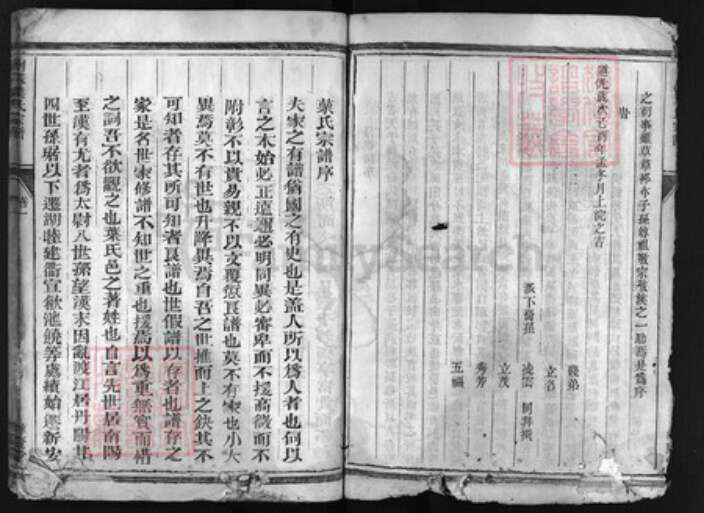 之前事雖草草於本子孫尊祖敬宗敬族之一助焉是爲序
旹
年孟冬月上浣之吉
錢弟
立名
派下裔孫
凌雲
同拜撰
立茂
秀芳
五福
葉氏宗譜序
夫家之有譜猶國之有史也是蓋人所以爲人者也何以
言之本始必正遠邇必明同異必審卑而不援高微而不
附彰不以貴易親不以文覆愆良譜也莫不有家也小大
異焉莫不有世也升降異焉自吾之世推而上之缺其不
可知者存其所可知者良譜也世假譜以存者也譜存之
家是名世家修譜不知世之重也援焉以爲重無實而借
之詞吾不欲觀之也葉氏邑之著姓也自言先世居南陽
至漢有尤者爲太尉八世孫望漢末因亂渡江居丹陽其
四世孫琚以下遷湖睦建衢宣歙池饒等處續始遷新安